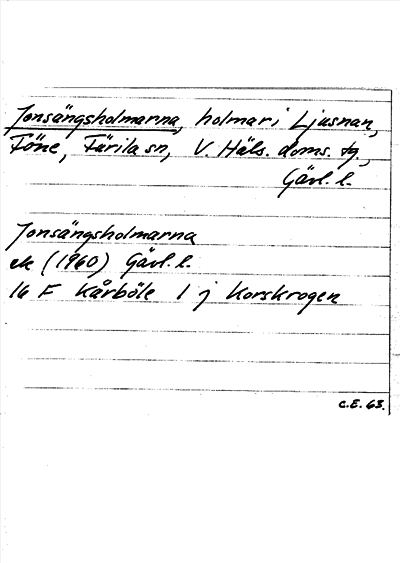 Jonsängsholmarna, holmar i Ljusnan,
Föne, Färila sn, V. Häls. doms. tg.,
Gävl. l.
Jonsängsholmarna
ek (1960) Gävl. l.
16 F Kårböle 1 j Korskrogen
C.E. 63.